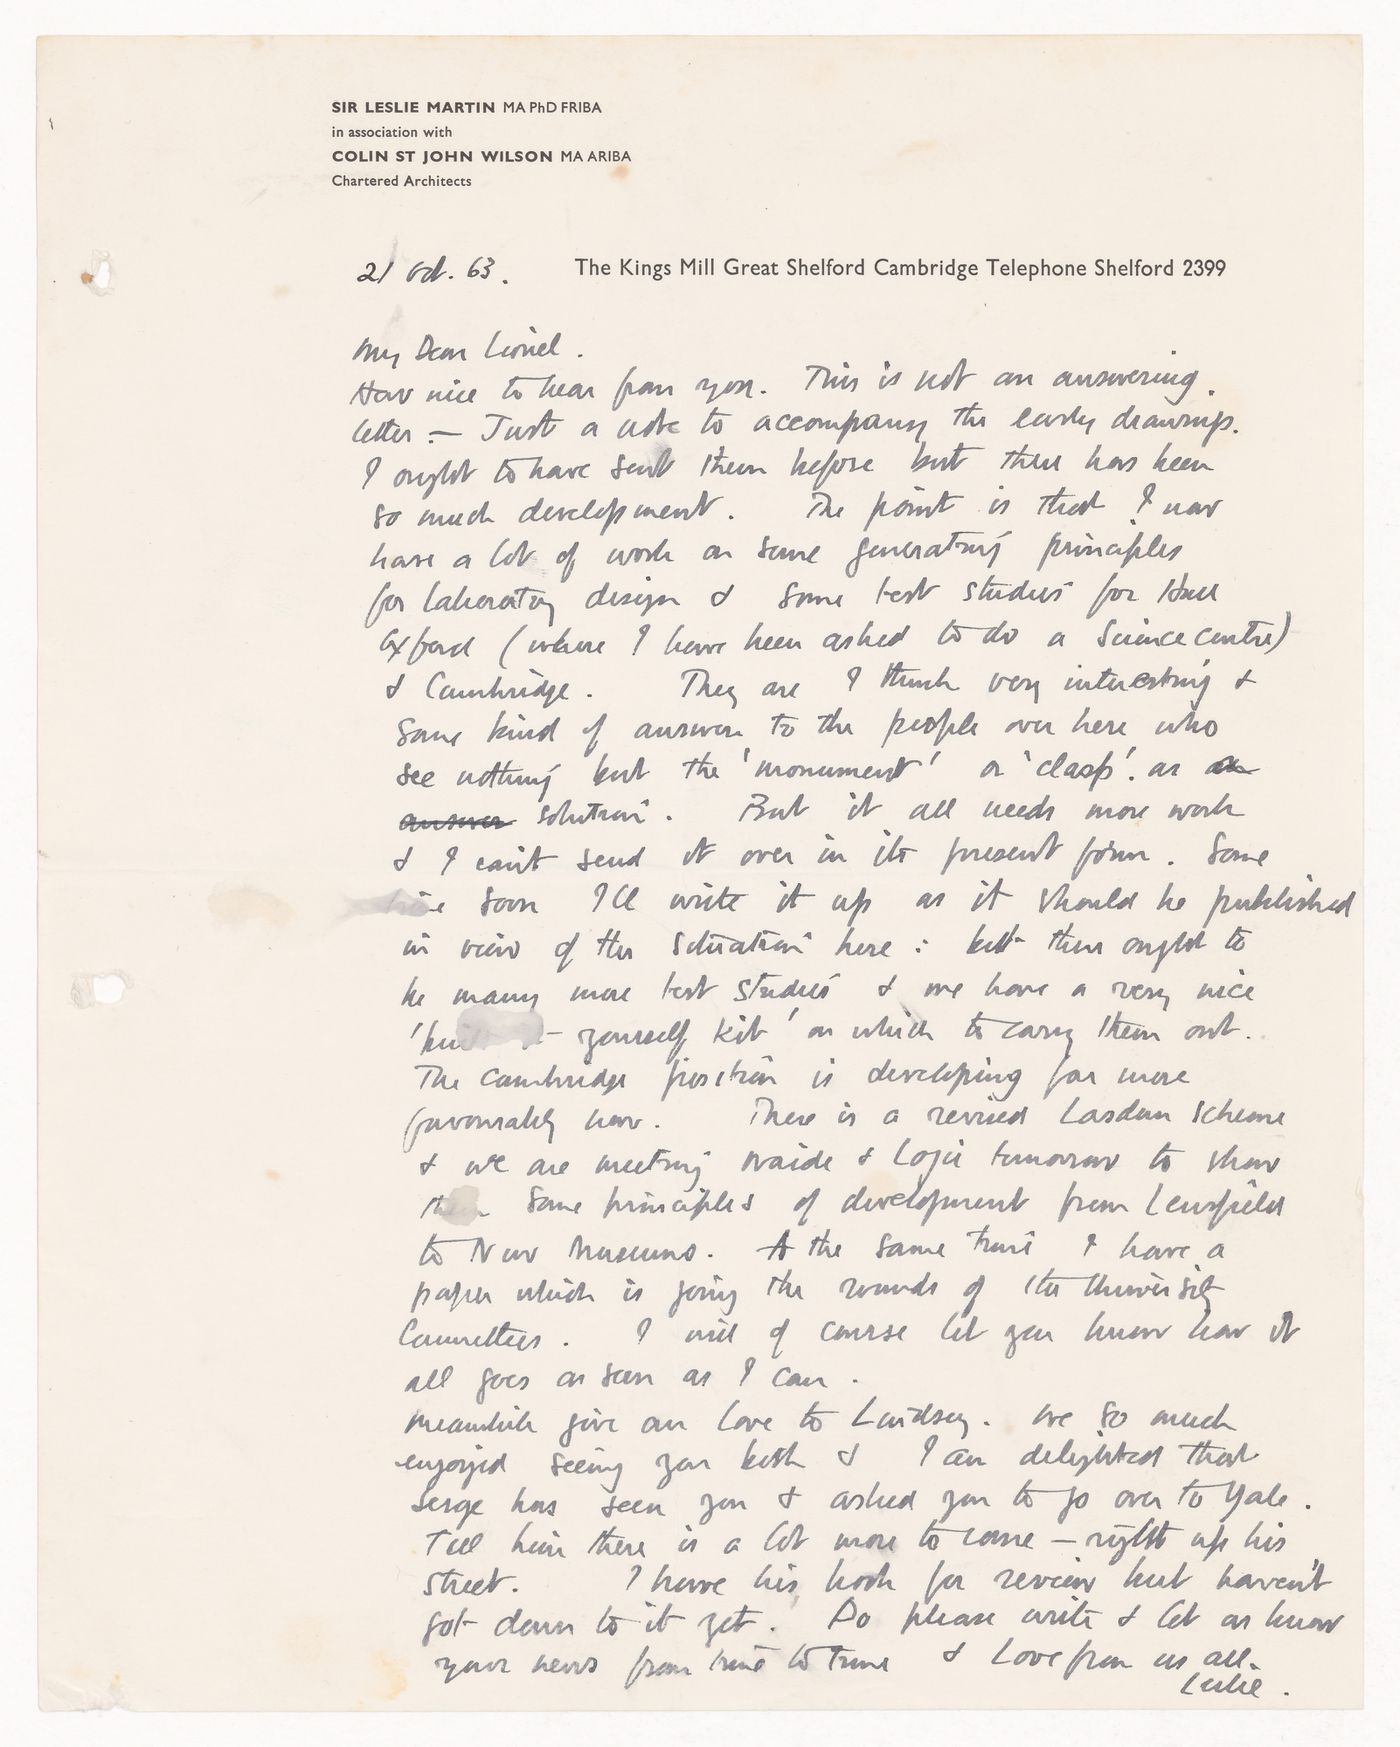 SIR LESLIE MARTIN MA PhD FRIBA
in association with
COLIN ST JOHN WILSON MA ARIBA
Chartered Architects
21 Oct. 63. The Kings Mill Great Shelford Cambridge Telephone Shelford 2399
My Dear Lionel.
How nice to hear from you. This is not an answering
letter – Just a note to accompany the early drawings.
I ought to have sent them before but there has been
so much development. The point is that I now
have a lot of work on some generating principles
for laboratory design & some test studies for Hull
Oxford (where I have been asked to do a Science centre)
& Cambridge. They are I think very interesting &
some kind of answer to the people over here who
see nothing but the 'monument' or 'clasp'. as an
answer solution. But it all needs more work
& I can't send it over in its present form. Some
time soon I'll write it up as it should be published
in view of the situation here: but there ought to
be many more test studies & we have a very nice
yourself kit' on which to carry them out.
The Cambridge position is developing far more
favourably now. There is a revised Lasdun scheme
& we are meeting & Logie tomorrow to show
them some principles of development from Lensfield
to New Museums. At the same time I have a
paper which is going the rounds of the University
Committees. I will of course let you know how it
all goes as soon as I can.
Meanwhile give our love to Lindsey. We so much
enjoyed seeing you both & I am delighted that
Serge has seen you & asked you to go over to Yale.
Tell him there is a lot more to come – right up his
street. I have his book for review but haven't
got down to it yet. Do please write & let us know
your news from time to time & Love from us all.
Leslie.